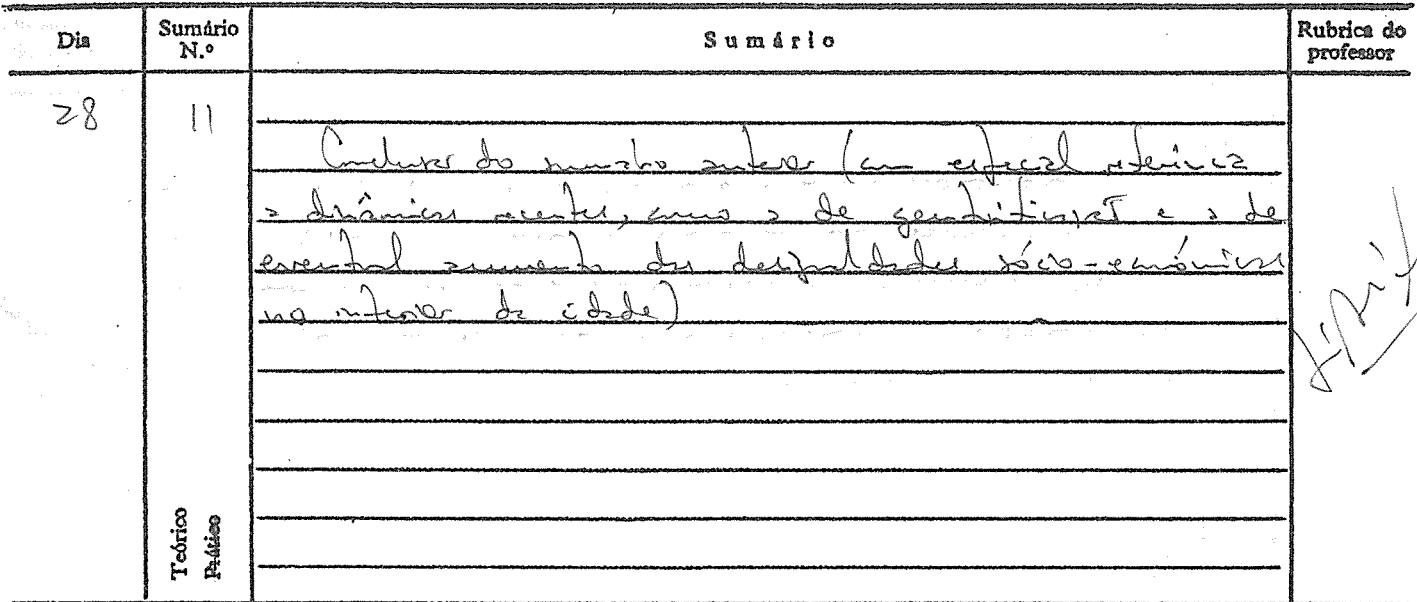 Dia Sumário N.º Sumário Rubrica do professor
28 11
Conclusão do sumário anterior (com especial referência
a dinâmicas recentes, como a de gentrificação e a de
eventual aumento das desigualdades sócio-económicas
no interior da cidade)
Teórico
Prático